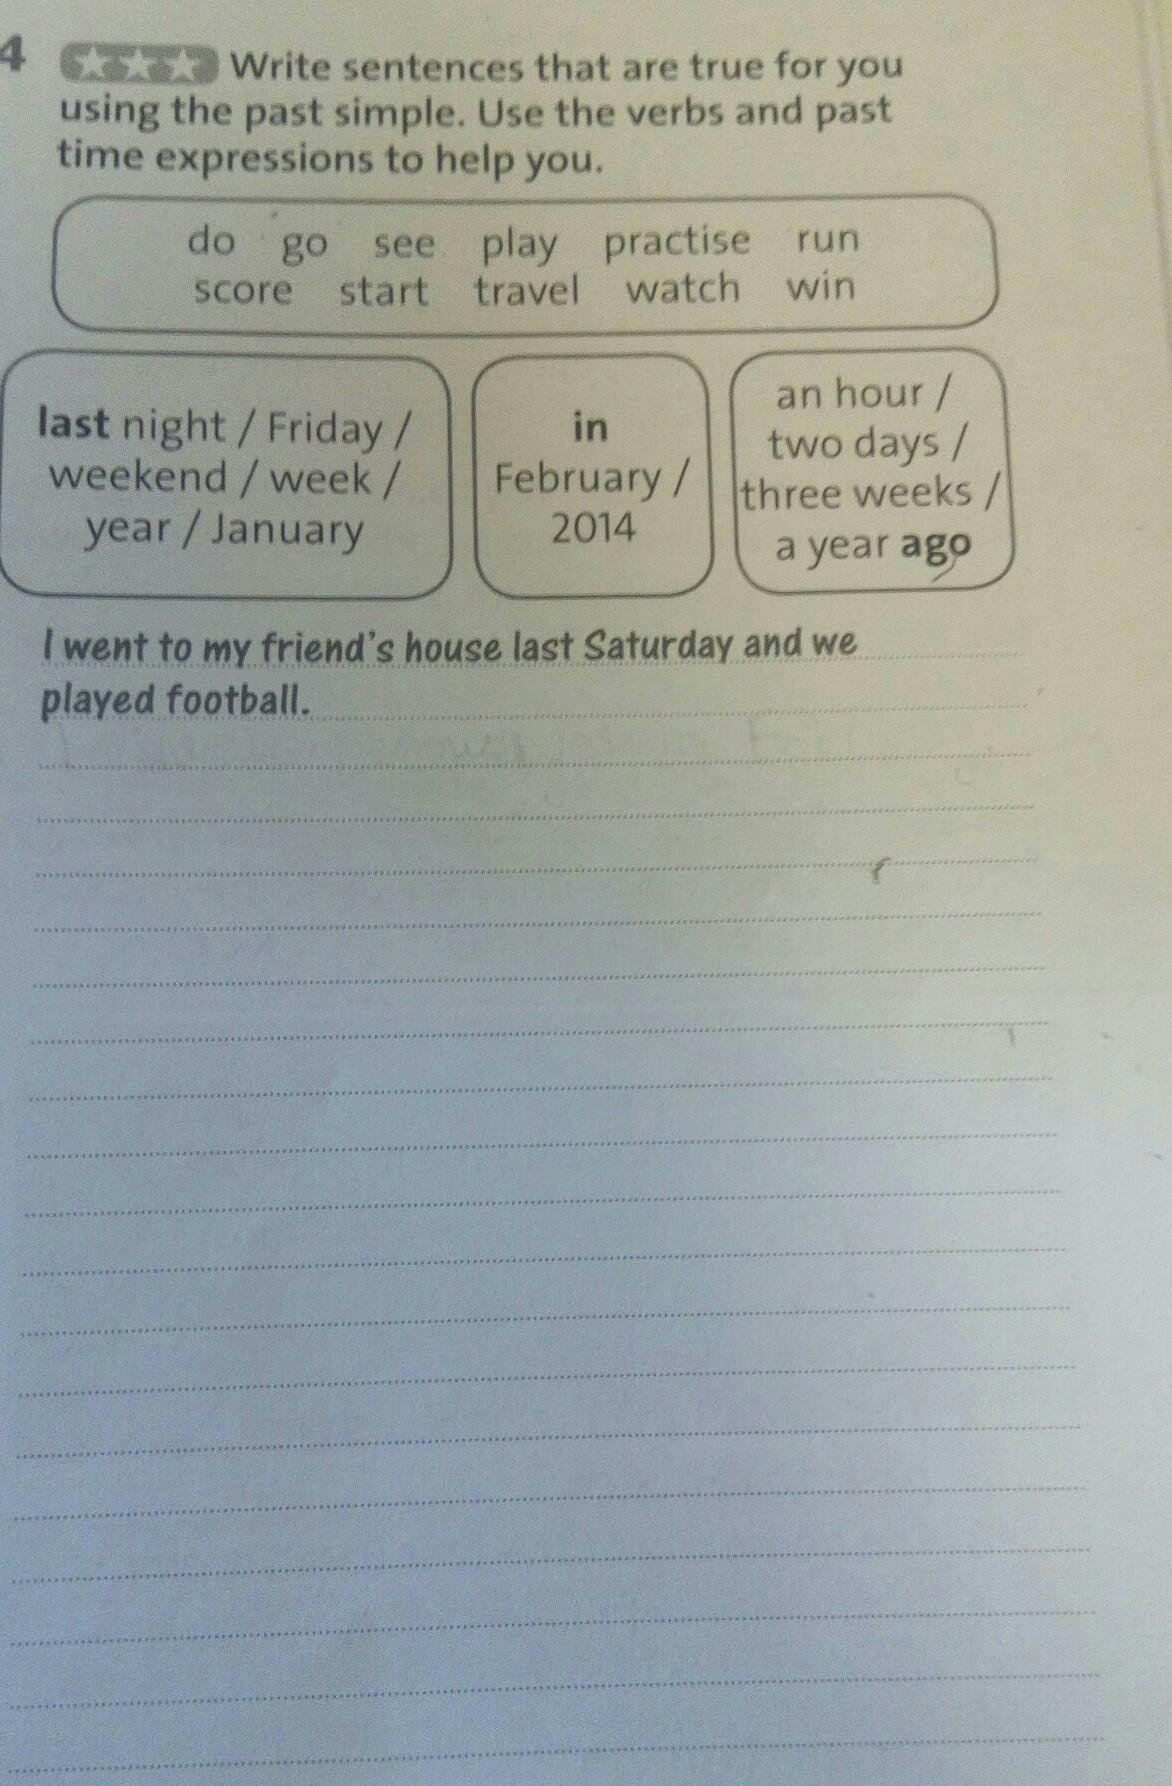 4 Write sentences that are true for you
using the past simple. Use the verbs and past
time expressions to help you.
do go see play practise run
score start travel watch win
last night / Friday /
weekend / week /
year / January
in
February /
2014
an hour /
two days /
three weeks /
a year ago
I went to my friend's house last Saturday and we
played football.